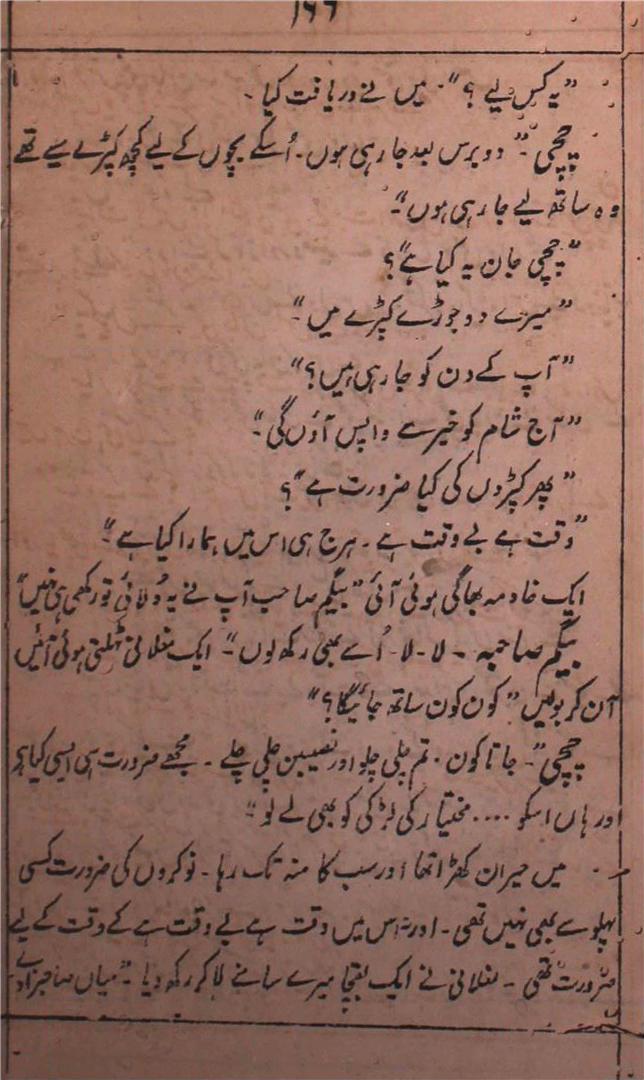 ۱۶۶
"یہ کس لیے ؟"۔ میں نے دریافت کیا ۔
چچی"۔ دو برس بعد جا رہی ہوں۔ اُسکے بچوں کے لیے کچھ کپڑے سیے تھے
وہ ساتھ لیے جا رہی ہوں"۔
"چچی جان یہ کیا ہے"؟
"میرے دو جوڑے کپڑے ہیں"۔
"آپ کے دن کو جا رہی ہیں؟"
"آج شام کو خیر سے واپس آؤں گی"۔
"پھر کپڑوں کی کیا ضرورت ہے"؟
"وقت ہے بے وقت ہے ۔ ہرج ہی اس میں ہمارا کیا ہے"۔
ایک خادمہ بھاگی ہوئی آئی "بیگم صاحب آپ نے یہ دُلائی تو رکھی ہی نہیں"
بیگم صاحبہ ۔ لا ۔ لا ۔ اُسے بھی رکھ لوں"۔ ایک مغلانی ٹہلتی ہوئی آئیں
آن کر بولیں "کون کون ساتھ جائیگا؟"
چچی"۔ جاتا کون ۔ تم چلی چلو اور نصیبن چلی چلے ۔ مجھے ضرورت ہی ایسی کیا ہے
اور ہاں اسکو .... مختیار کی لڑکی کو بھی لے لو"۔
میں حیران کھڑا تھا اور سب کا منہ تک رہا ۔ نوکروں کی ضرورت کسی
پہلو سے بھی نہیں تھی ۔ اور نہ اس میں وقت ہے بے وقت ہے کے وقت کے لیے
ضرورت تھی ۔ مغلانی نے ایک بقچا میرے سامنے لا کر رکھ دیا ۔ "میاں صاحبزادے